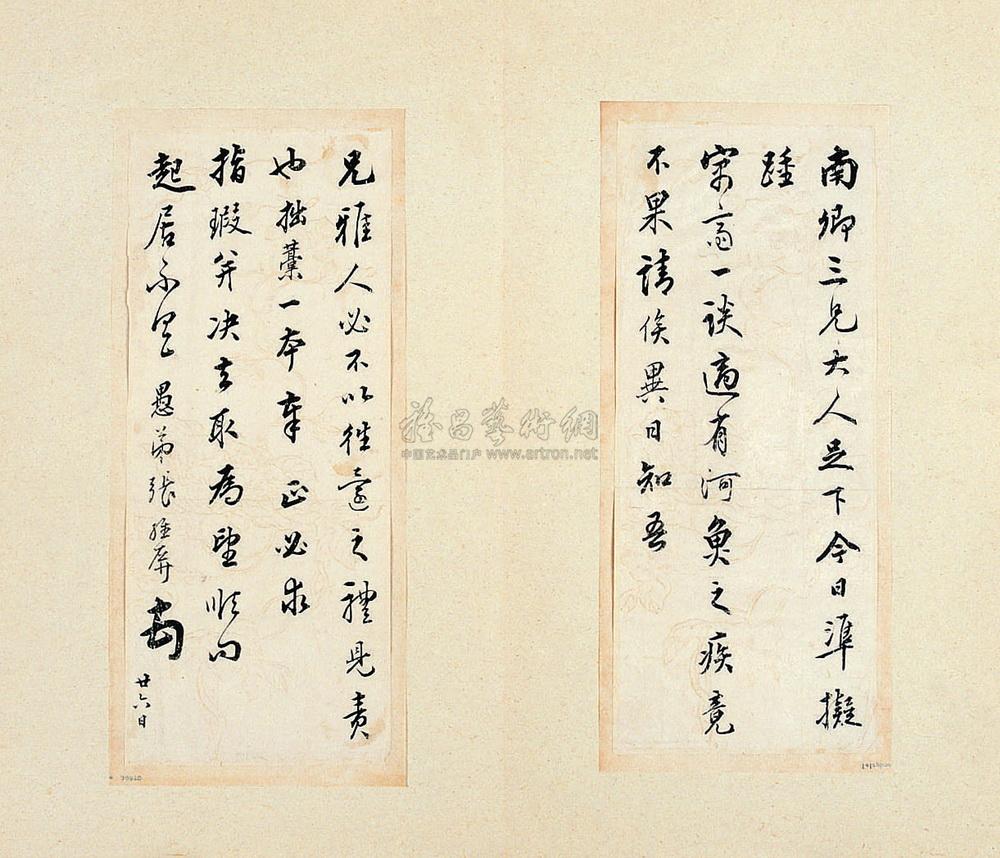 南卿三兄大人足下今日準擬
踵
齋一談適有河魚之疾竟
不果請俟異日知吾
兄雅人必不以往還之禮見責
也拙藁一本奉正必求
指瑕并決去取為望順問
起居不具愚弟張維屏
廿六日
雅昌藝術網
中国艺术品门户 www.artron.net